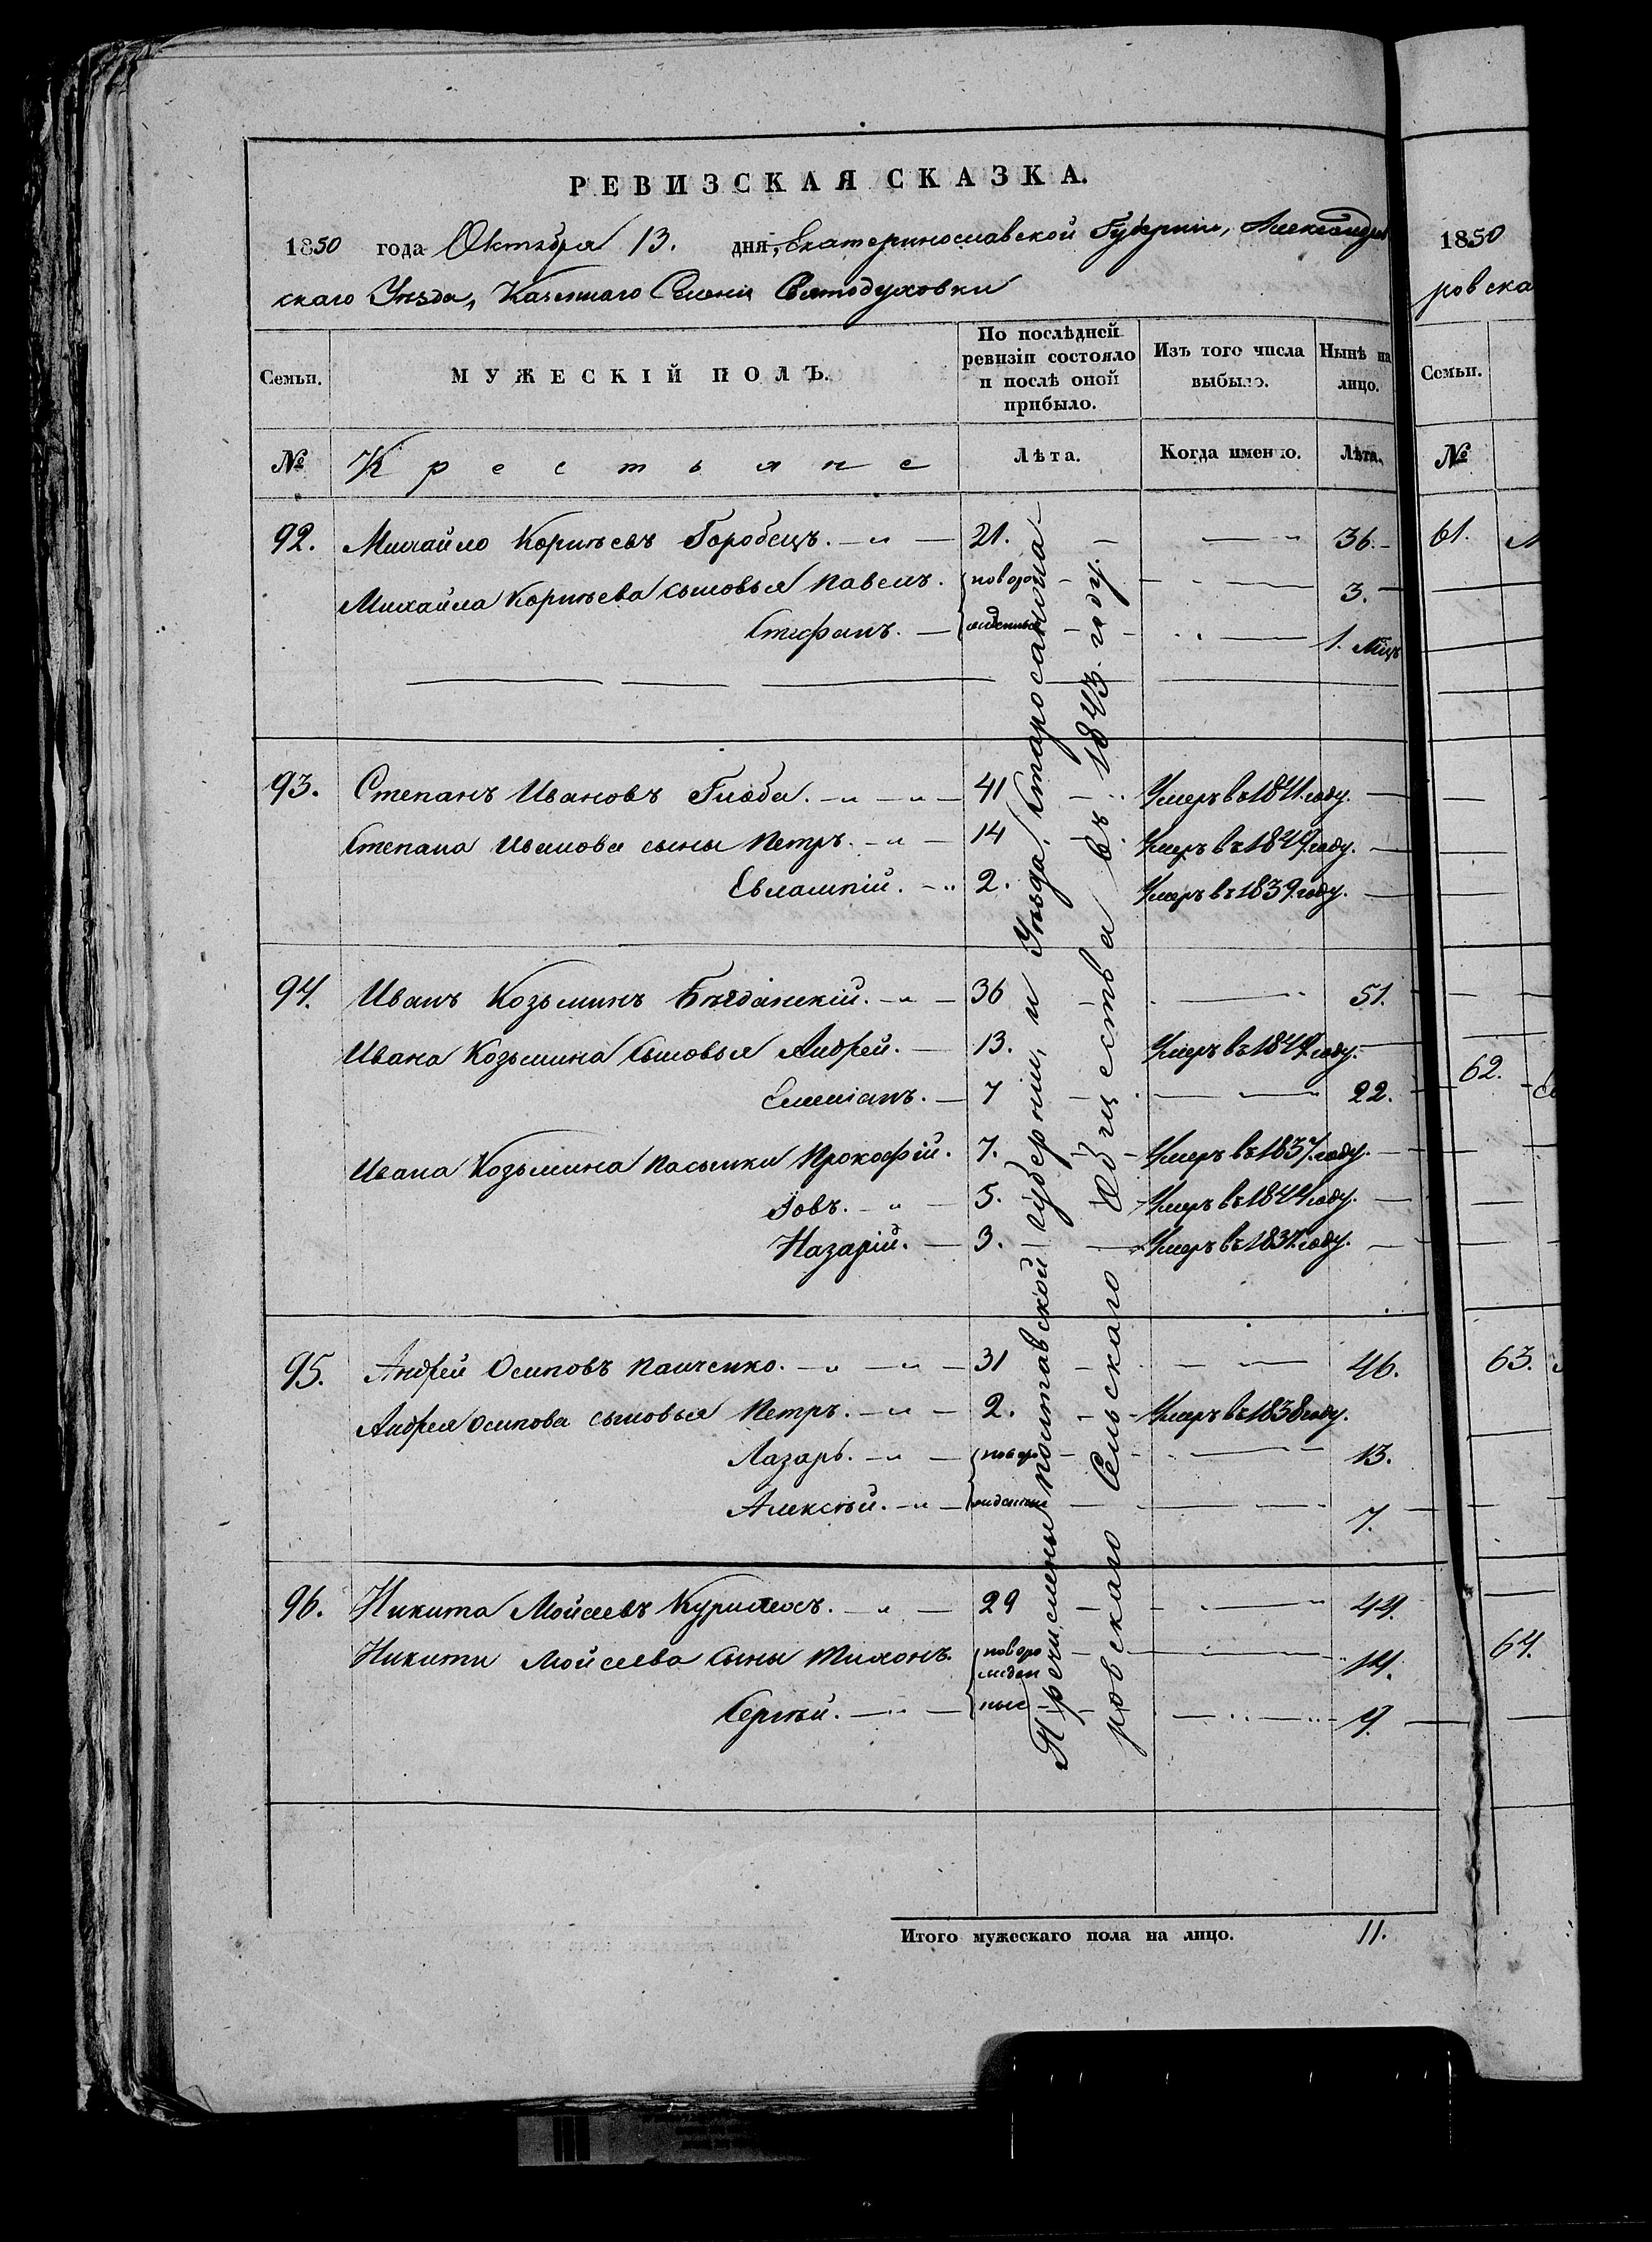 РЕВИЗСКАЯ СКАЗКА.
1850 года Октября 13. дня, Екатеринославской Губернiи, Александров
скаго Уѣзда, Казеннаго Селенiя Святодуховки
Семьи.
МУЖЕСКІЙ ПОЛЪ.
По послѣдней ревизіи состояло и послѣ оной прибыло.
Изъ того числа выбыло.
Нынѣ на лицо.
№ Крестьяне Лѣта. Когда именно. Лѣта.
92. Михайло Корнѣевъ Горобецъ. 21. 36.
Михайла Корнѣева сыновья Павелъ. новоро 3.
Стефанъ. жденные 1. мѣцъ
93. Степанъ Ивановъ Глоба. 41 Умеръ въ 1841 году.
Степана Иванова сыны Петръ. 14 Умеръ въ 1849 году.
Евлампiй. 2. Умеръ въ 1839 году.
94. Иванъ Козьминъ 36 51.
Ивана Козьмина сыновья Андрей. 13. Умеръ въ 1849 году.
Емелiанъ. 7 22.
Ивана Козьмина пасынки Прокофiй. 7. Умеръ въ 1837 году.
Iовъ. 5. Умеръ въ 1844 году.
Назарiй. 3. Умеръ въ 1837 году.
95. Андрей Осиповъ Панченко. 31 46.
Андрея Осипова сыновья Петръ. 2. Умеръ въ 1838 году.
Лазарь. новоро 13.
Алексѣй. жденные 7.
96. Никита Мойсеевъ 29 44.
Никиты Мойсеева сыны Тихонъ. новоро жден 14.
Сергѣй. ные 9.
Перечислены Полтавской губернiи, и Уѣзда, Старосанжа
ровскаго Сельскаго Общества въ 1843. году.
Итого мужескаго пола на лицо. 11.
1850
ровска
Семьи.
№
61.
62.
63.
64.